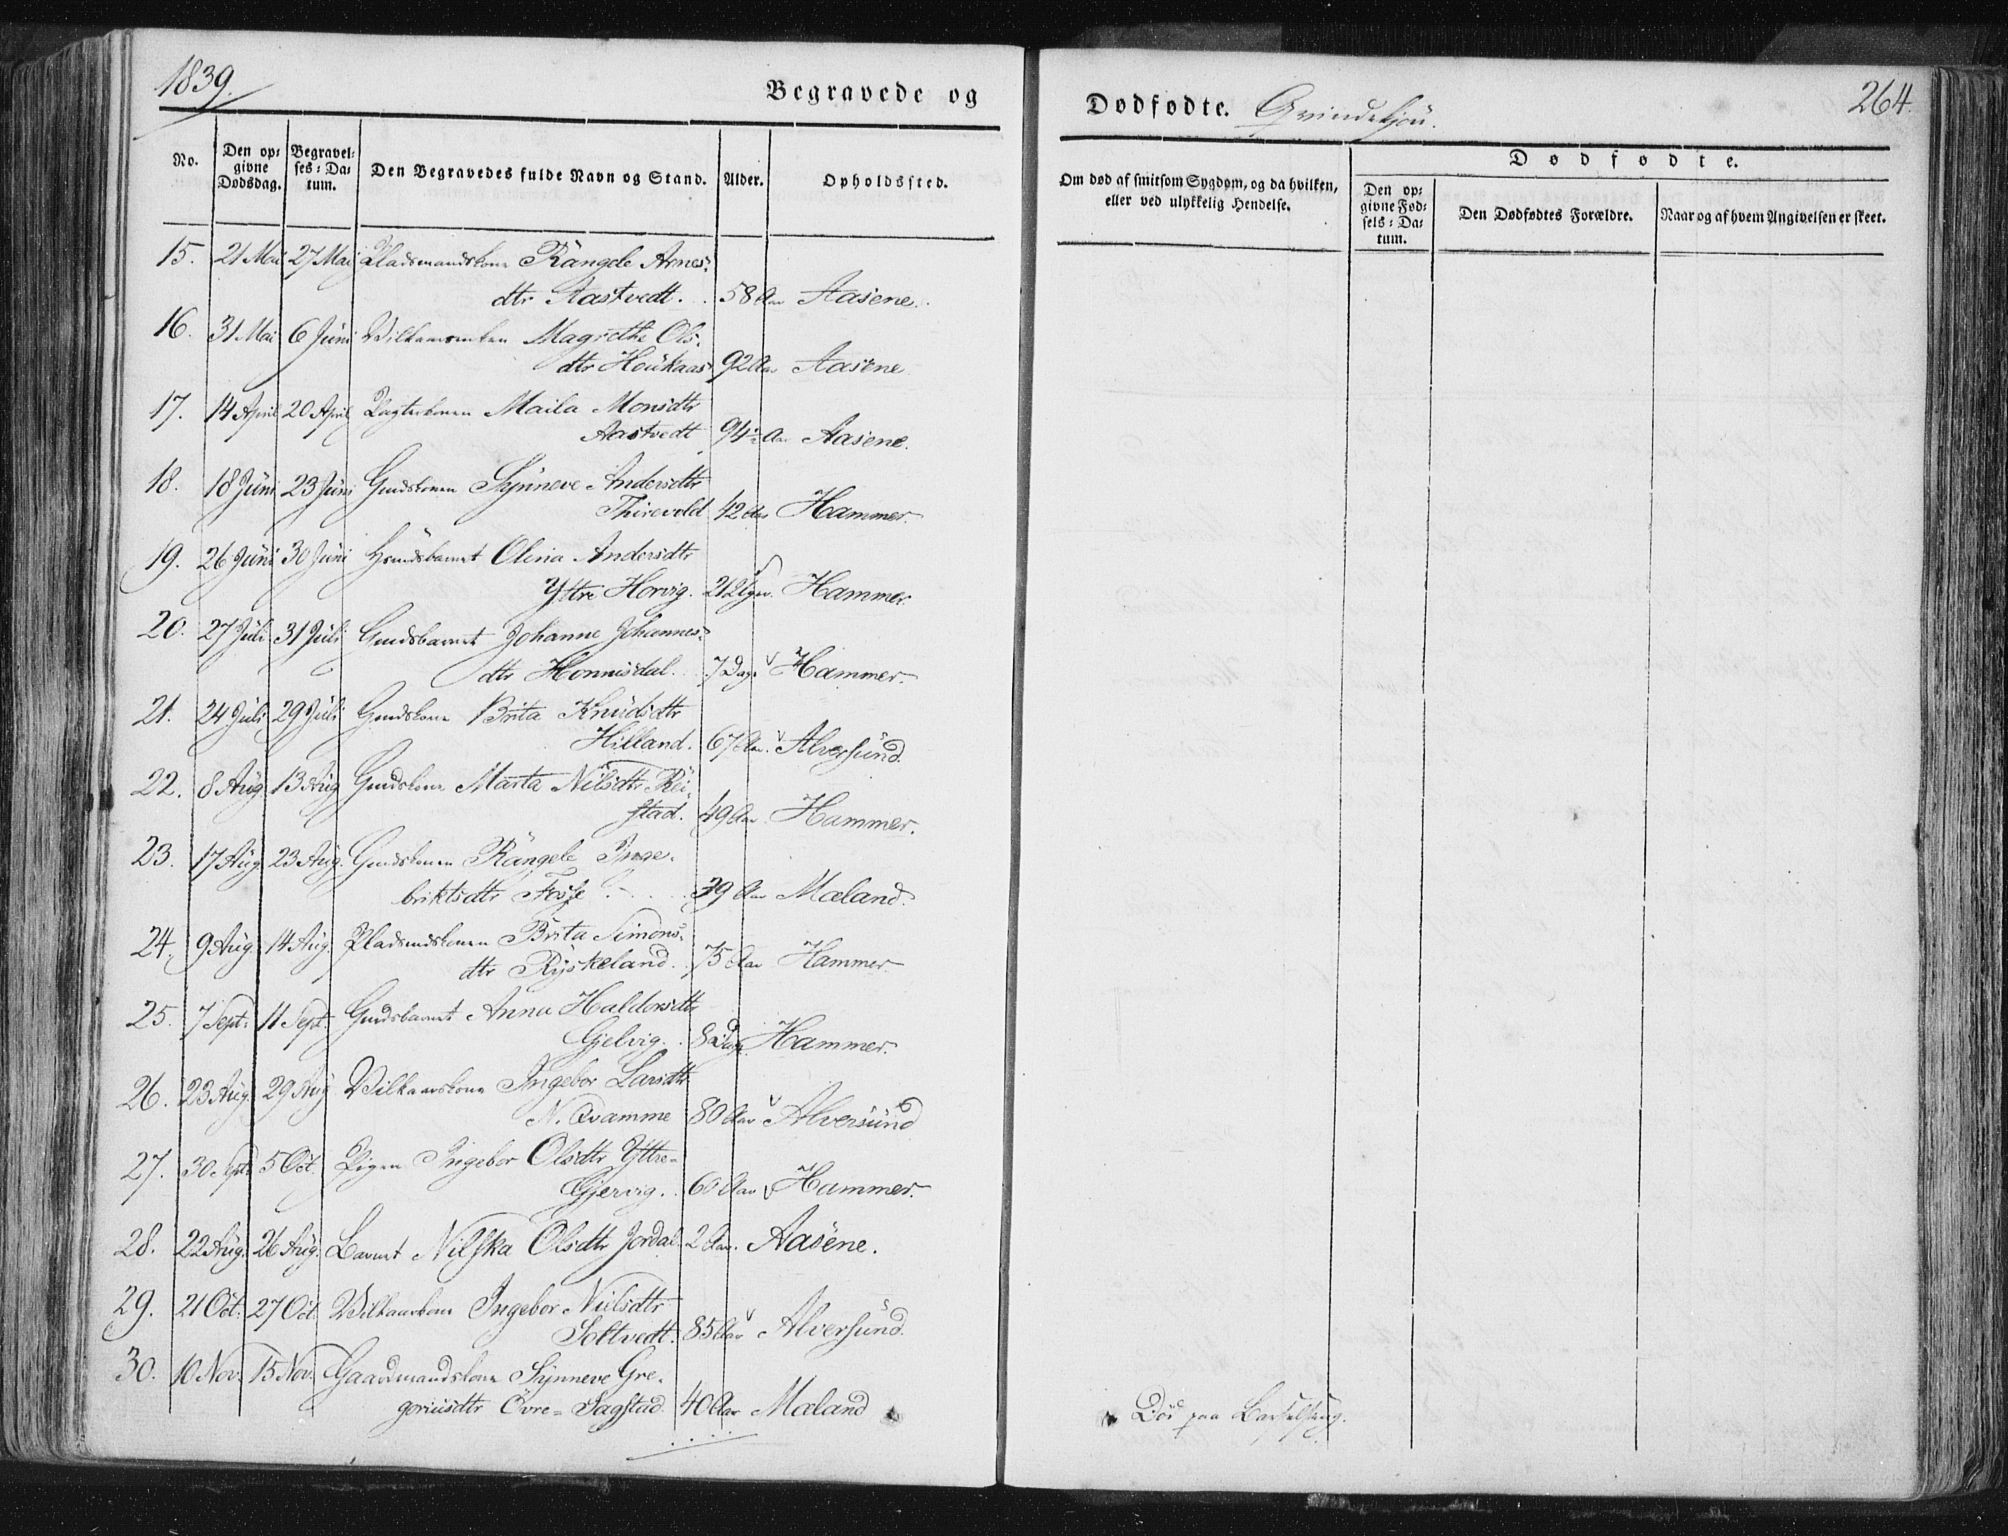 1839.
Begravede og
Dødfødte. Qvindekjön.
264.
No.
Den opgivne Dødsdag.
Begravelses-Datum.
Den Begravedes fulde Navn og Stand.
Alder.
Opholdssted.
Om død af smitsom Sygdom, og da hvilken, eller ved ulykkelig Hendelse.
Dødfødte.
Den opgivne Fødsels-Datum.
Den Dødfødtes Forældre.
Naar og af hvem Angivelsen er skeet.
15. 21 Mai 27 Mai Pladsmandskone Rangele Arnes-
dtr Aastvedt. 58 Aar Aasene.
16. 31 Mai 6 Juni Magrethe Ols-
dtr Houkaas 92 Aar Aasene
17. 14 April 20 April Maila Monsdtr
Aastvedt 94 Aar Aasene.
18. 18 Juni 23 Juni Gmdskonen Synneve Andersdtr
42 Aar Hammer.
19. 26 Juni 30 Juni Olina Andersdtr
Yttre Horvig. Hammer.
20. 27 Juli 31 Juli Gmdsbarnet Johanne Johannes-
dtr Honnisdal. 7 Dage Hammer.
21. 24 Juli 29 Juli Gmdskone Brita Knudsdtr
Hilland. 67 Aar Alversund.
22. 8 Aug 13 Aug Gmdskone Marta Nilsdtr Rei-
stad. 49 Aar Hammer.
23. 17 Aug. 23 Aug. Gmdskonen Rangele Inge-
briktsdtr Fosse 39 Aar Mæland.
24. 9 Aug. 14 Aug. Pladsmdskonen Brita Simons-
dtr Ryskeland. 75 Aar Hammer
25. 7 Sept. 11 Sept. Gmdsbarnet Anna Haldorsdtr
Gjelvig. 8 Dage Hammer.
26. 23 Aug. 29 Aug Vilkaarskone Ingebor Larsdtr
N. Qvamme 80 Aar Alversund
27. 30 Sept 5 Oct. Pigen Ingebor Olsdtr Yttre-
Gjervig. 60 Aar Hammer.
28. 22 Aug. 26 Aug. Barnet Nilska Olsdtr Jordal 2 Aar. Aasene.
29. 21 Oct. 27 Oct. Vilkaarskone Ingebor Nielsdtr
Soltvedt. 85 Aar Alversund.
30. 10 Nov. 15 Nov. Gaardmandskone Synneve Gre-
goriusdtr Övre-Sagstad 40 Aar Mæland
Död paa Barselseng.